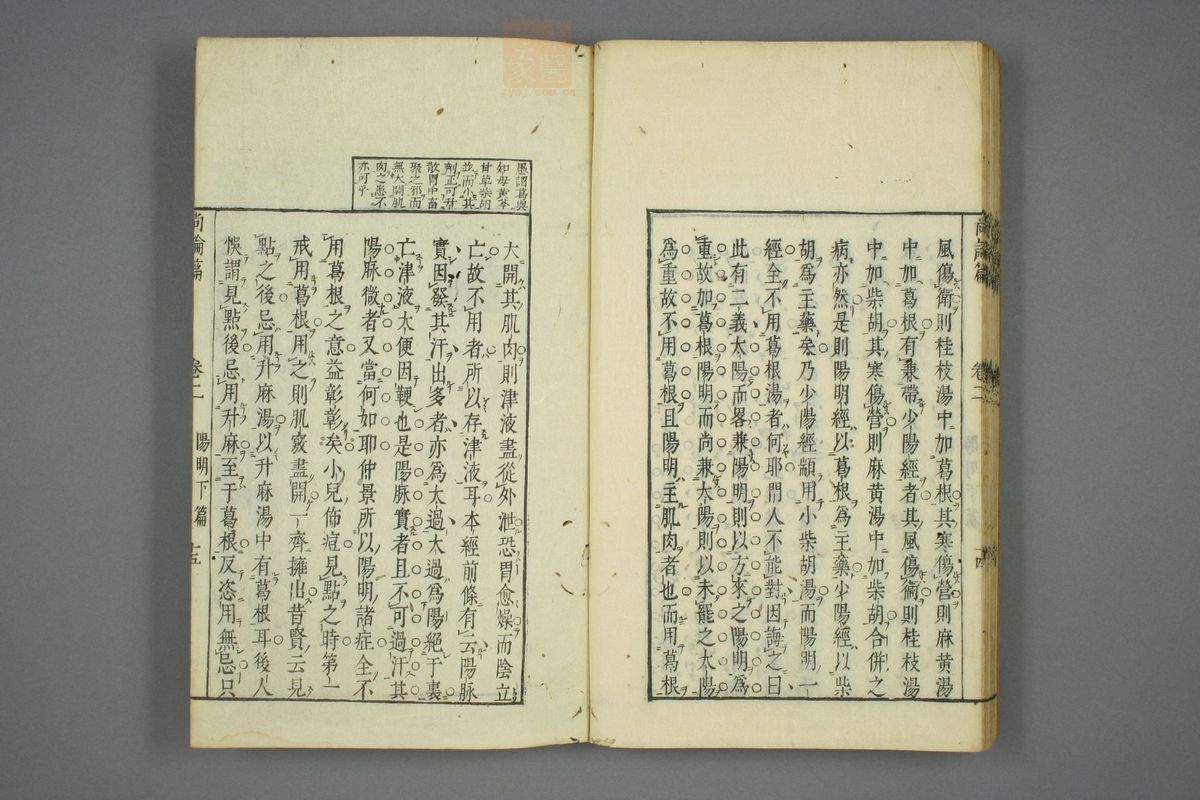 尚論篇 卷二 十四
風傷衛則桂枝湯中加葛根其寒傷營則麻黃湯
中加葛根有兼帶少陽經者其風傷衛則桂枝湯
中加柴胡其寒傷營則麻黃湯中加柴胡合併之
病亦然是則陽明經以葛根爲主藥少陽經以柴
胡爲主藥矣乃少陽經顓用小柴胡湯而陽明一
經全不用葛根湯者何耶門人不能對因誨之曰
此有二義太陽而畧兼陽明則以方來之陽明爲
重故加葛根陽明而尚兼太陽則以未罷之太陽
爲重故不用葛根且陽明主肌肉者也而用葛根
愚謂葛與
知母黃芩
甘草柴胡
並而小其
劑正可升
散胃中畜
聚之邪而
無大開肌
肉之患不
亦可乎
大開其肌肉則津液盡從外泄恐胃愈燥而陰立
亡故不用者所以存津液耳本經前條有云陽脉
實因發其汗出多者亦爲太過太過爲陽絕于裏
亡津液大便因鞕也是陽脉實者且不可過汗其
陽脉微者又當何如耶仲景所以陽明諸症全不
用葛根之意益彰彰矣小兒佈痘見點之時第一
戒用葛根用之則肌竅盡開一齊擁出昔賢云見
點之後忌用升麻湯以升麻湯中有葛根耳後人
悞謂見點後忌用升麻至于葛根反恣用無忌只
尚論篇 卷二 陽明下篇 十五